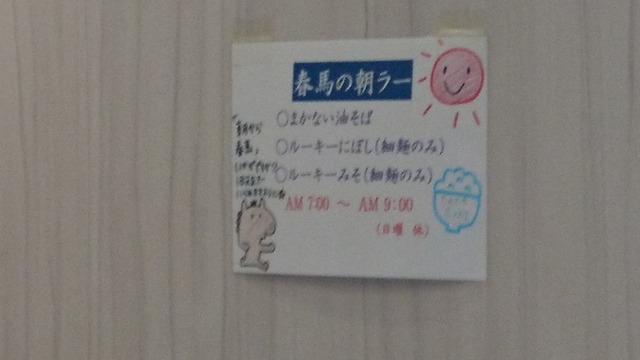 春馬の朝ラー
○まかない油そば
○ルーキーにぼし(細麺のみ)
○ルーキーみそ(細麺のみ)
AM 7:00 ～ AM 9:00
(日曜 休)
朝から
春馬♪